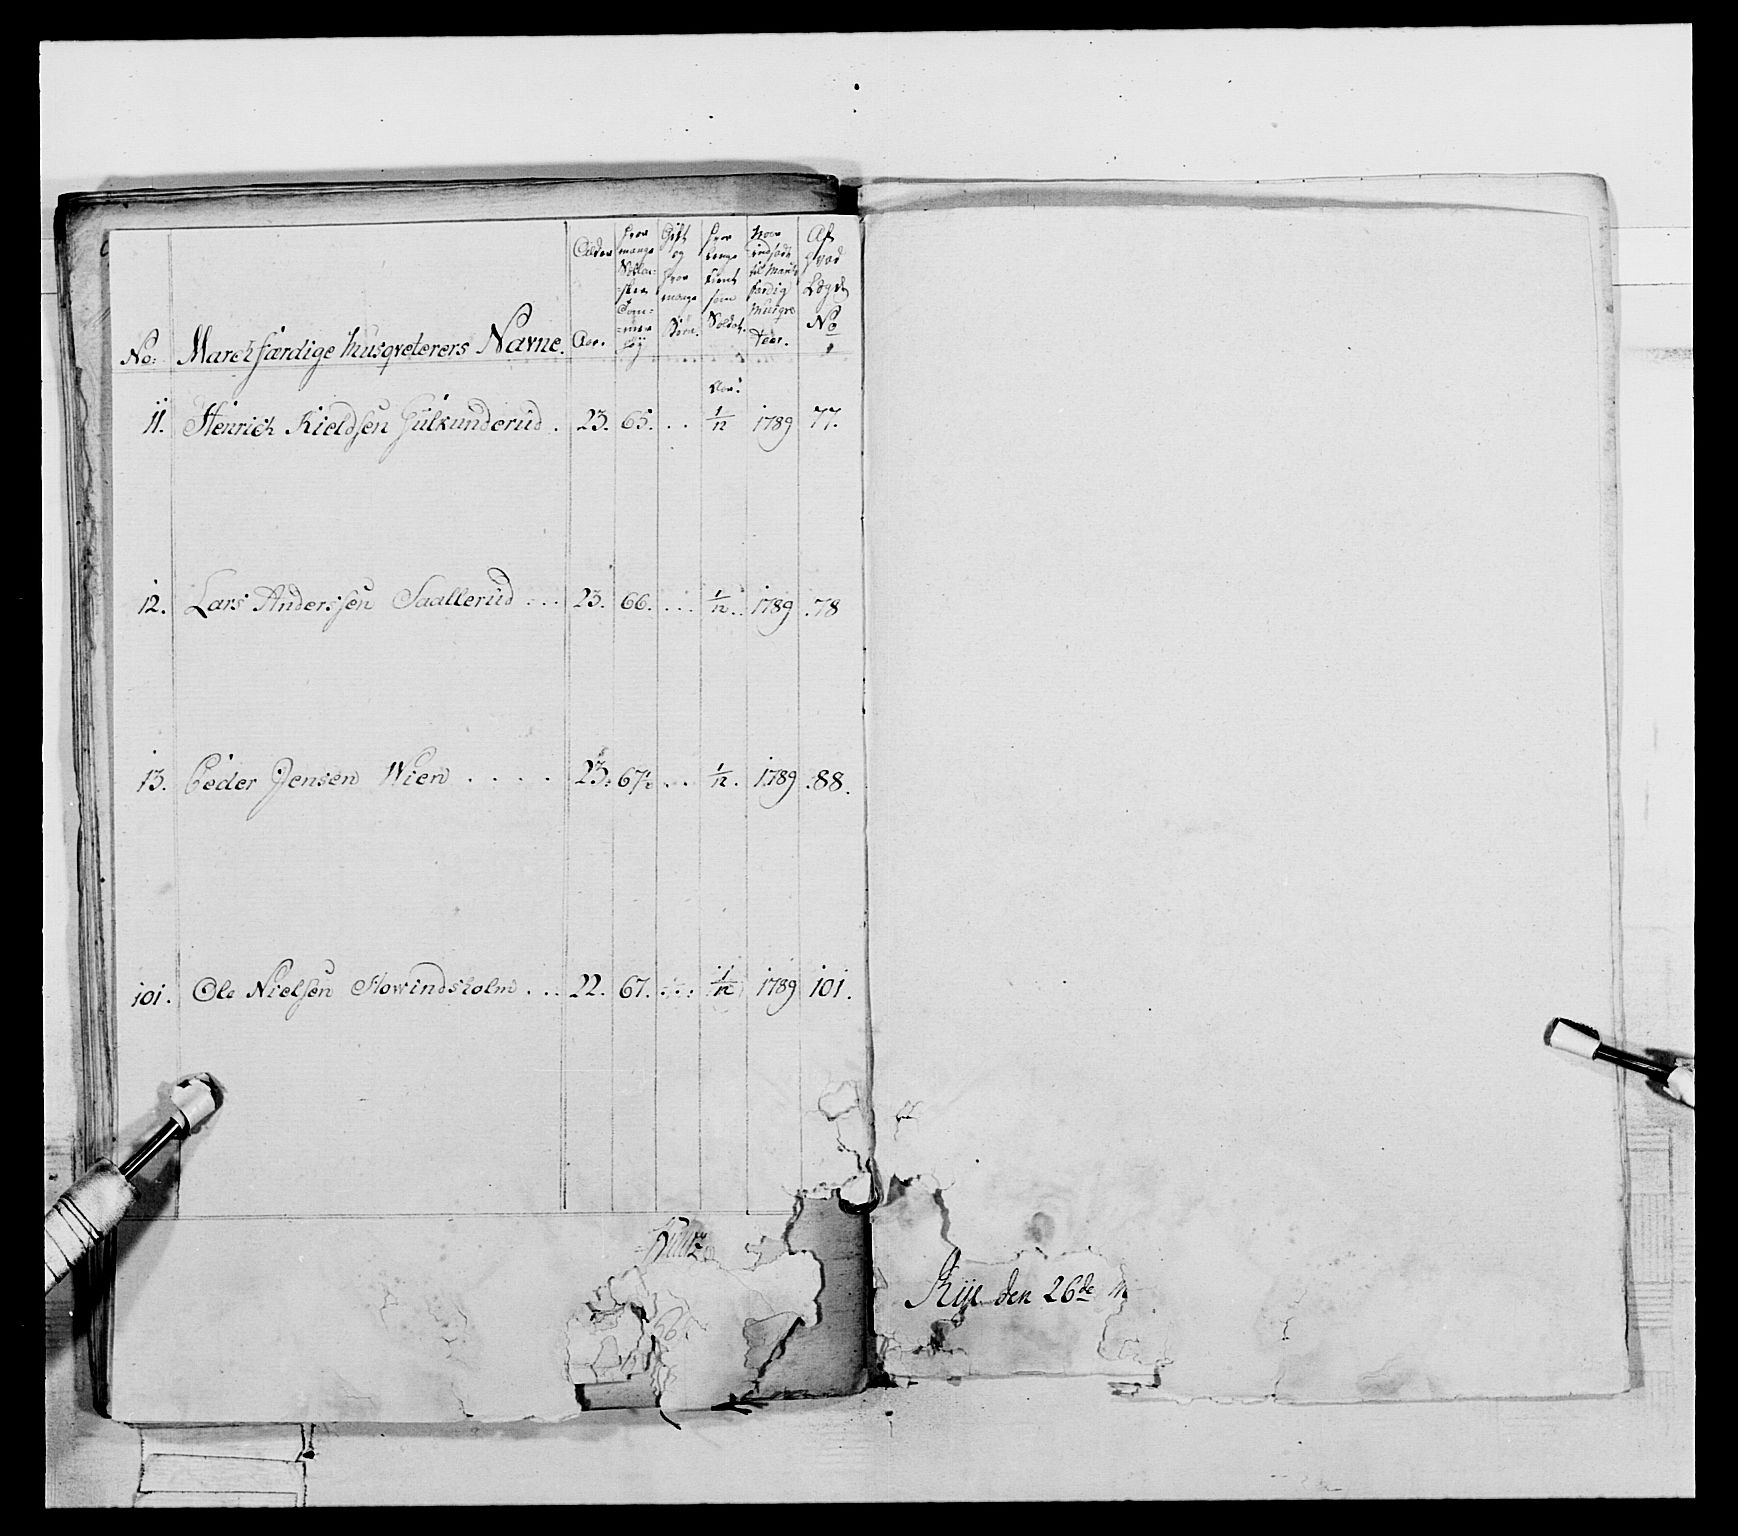 No: Marchfærdige Musqveterers Navne. Alder Aar. Hvor mange Solda- Com- Gift og Hvor mange Børn. Hvor Længe tient som Soldat. Naar indsadt til March færdig Musqve teer. Af Hvad Lægd No
Aar:
11. Henrich Kieldsen Gulkunderud . 23. 65. . . 1/12 1789 77.
12. Lars Anderssen Saallerud . . . 23. 66. . . . 1/12 . . 1789 . 78
13. Peder Jensen Wien . . . . 23. 67. . . 1/12 . 1789 . 88.
101. Ole Nielsen Skowindsholm . . . 22. 67. . . . 1/12 1789 101.
Rije den 26de M